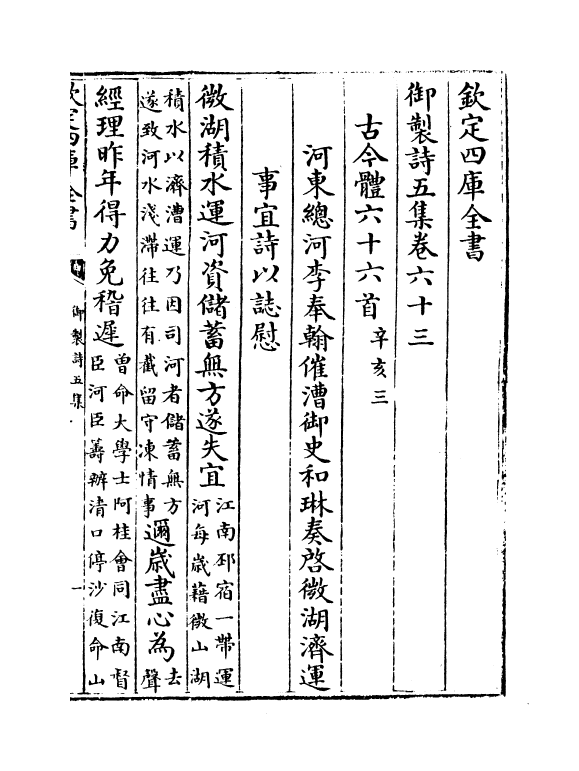 欽定四庫全書
御製詩五集卷六十三
古今體六十六首辛亥三
河東總河李奉翰催漕御史和琳奏啓微湖濟運
事宜詩以誌慰
微湖積水運河資儲蓄無方遂失宜江南邳宿一帶運河每歲藉微山湖
積水以濟漕運乃因司河者儲蓄無方遂致河水淺滯往往有截留守凍情事邇歲盡心為去聲
經理昨年得力免稽遲曽命大學士阿桂會同江南督臣河臣籌辦清口停沙復命山
欽定四庫全書
御製詩五集
一